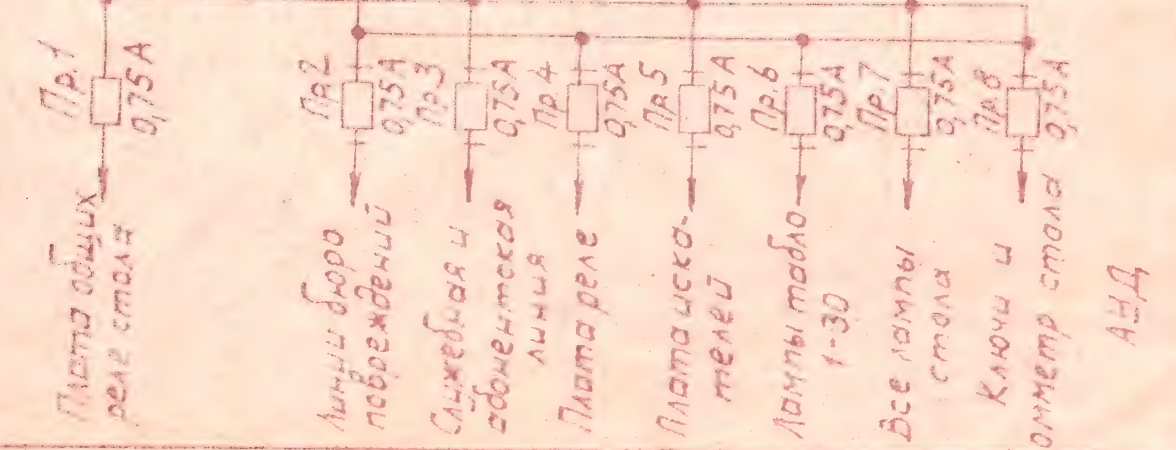 Пр.1
0,75 А
Плата общих
реле стола
Пр.2
0,75 А
Линии бюро
повреждений
Пр.3
0,75 А
Служебная и
абонентская
линия
Пр.4
0,75 А
Плата реле
Пр.5
0,75 А
Плата иска-
телей
Пр.6
0,75 А
Лампы табло
1-30
Пр.7
0,75 А
Все лампы
стола
Пр.8
0,75 А
Ключи и
омметр стола